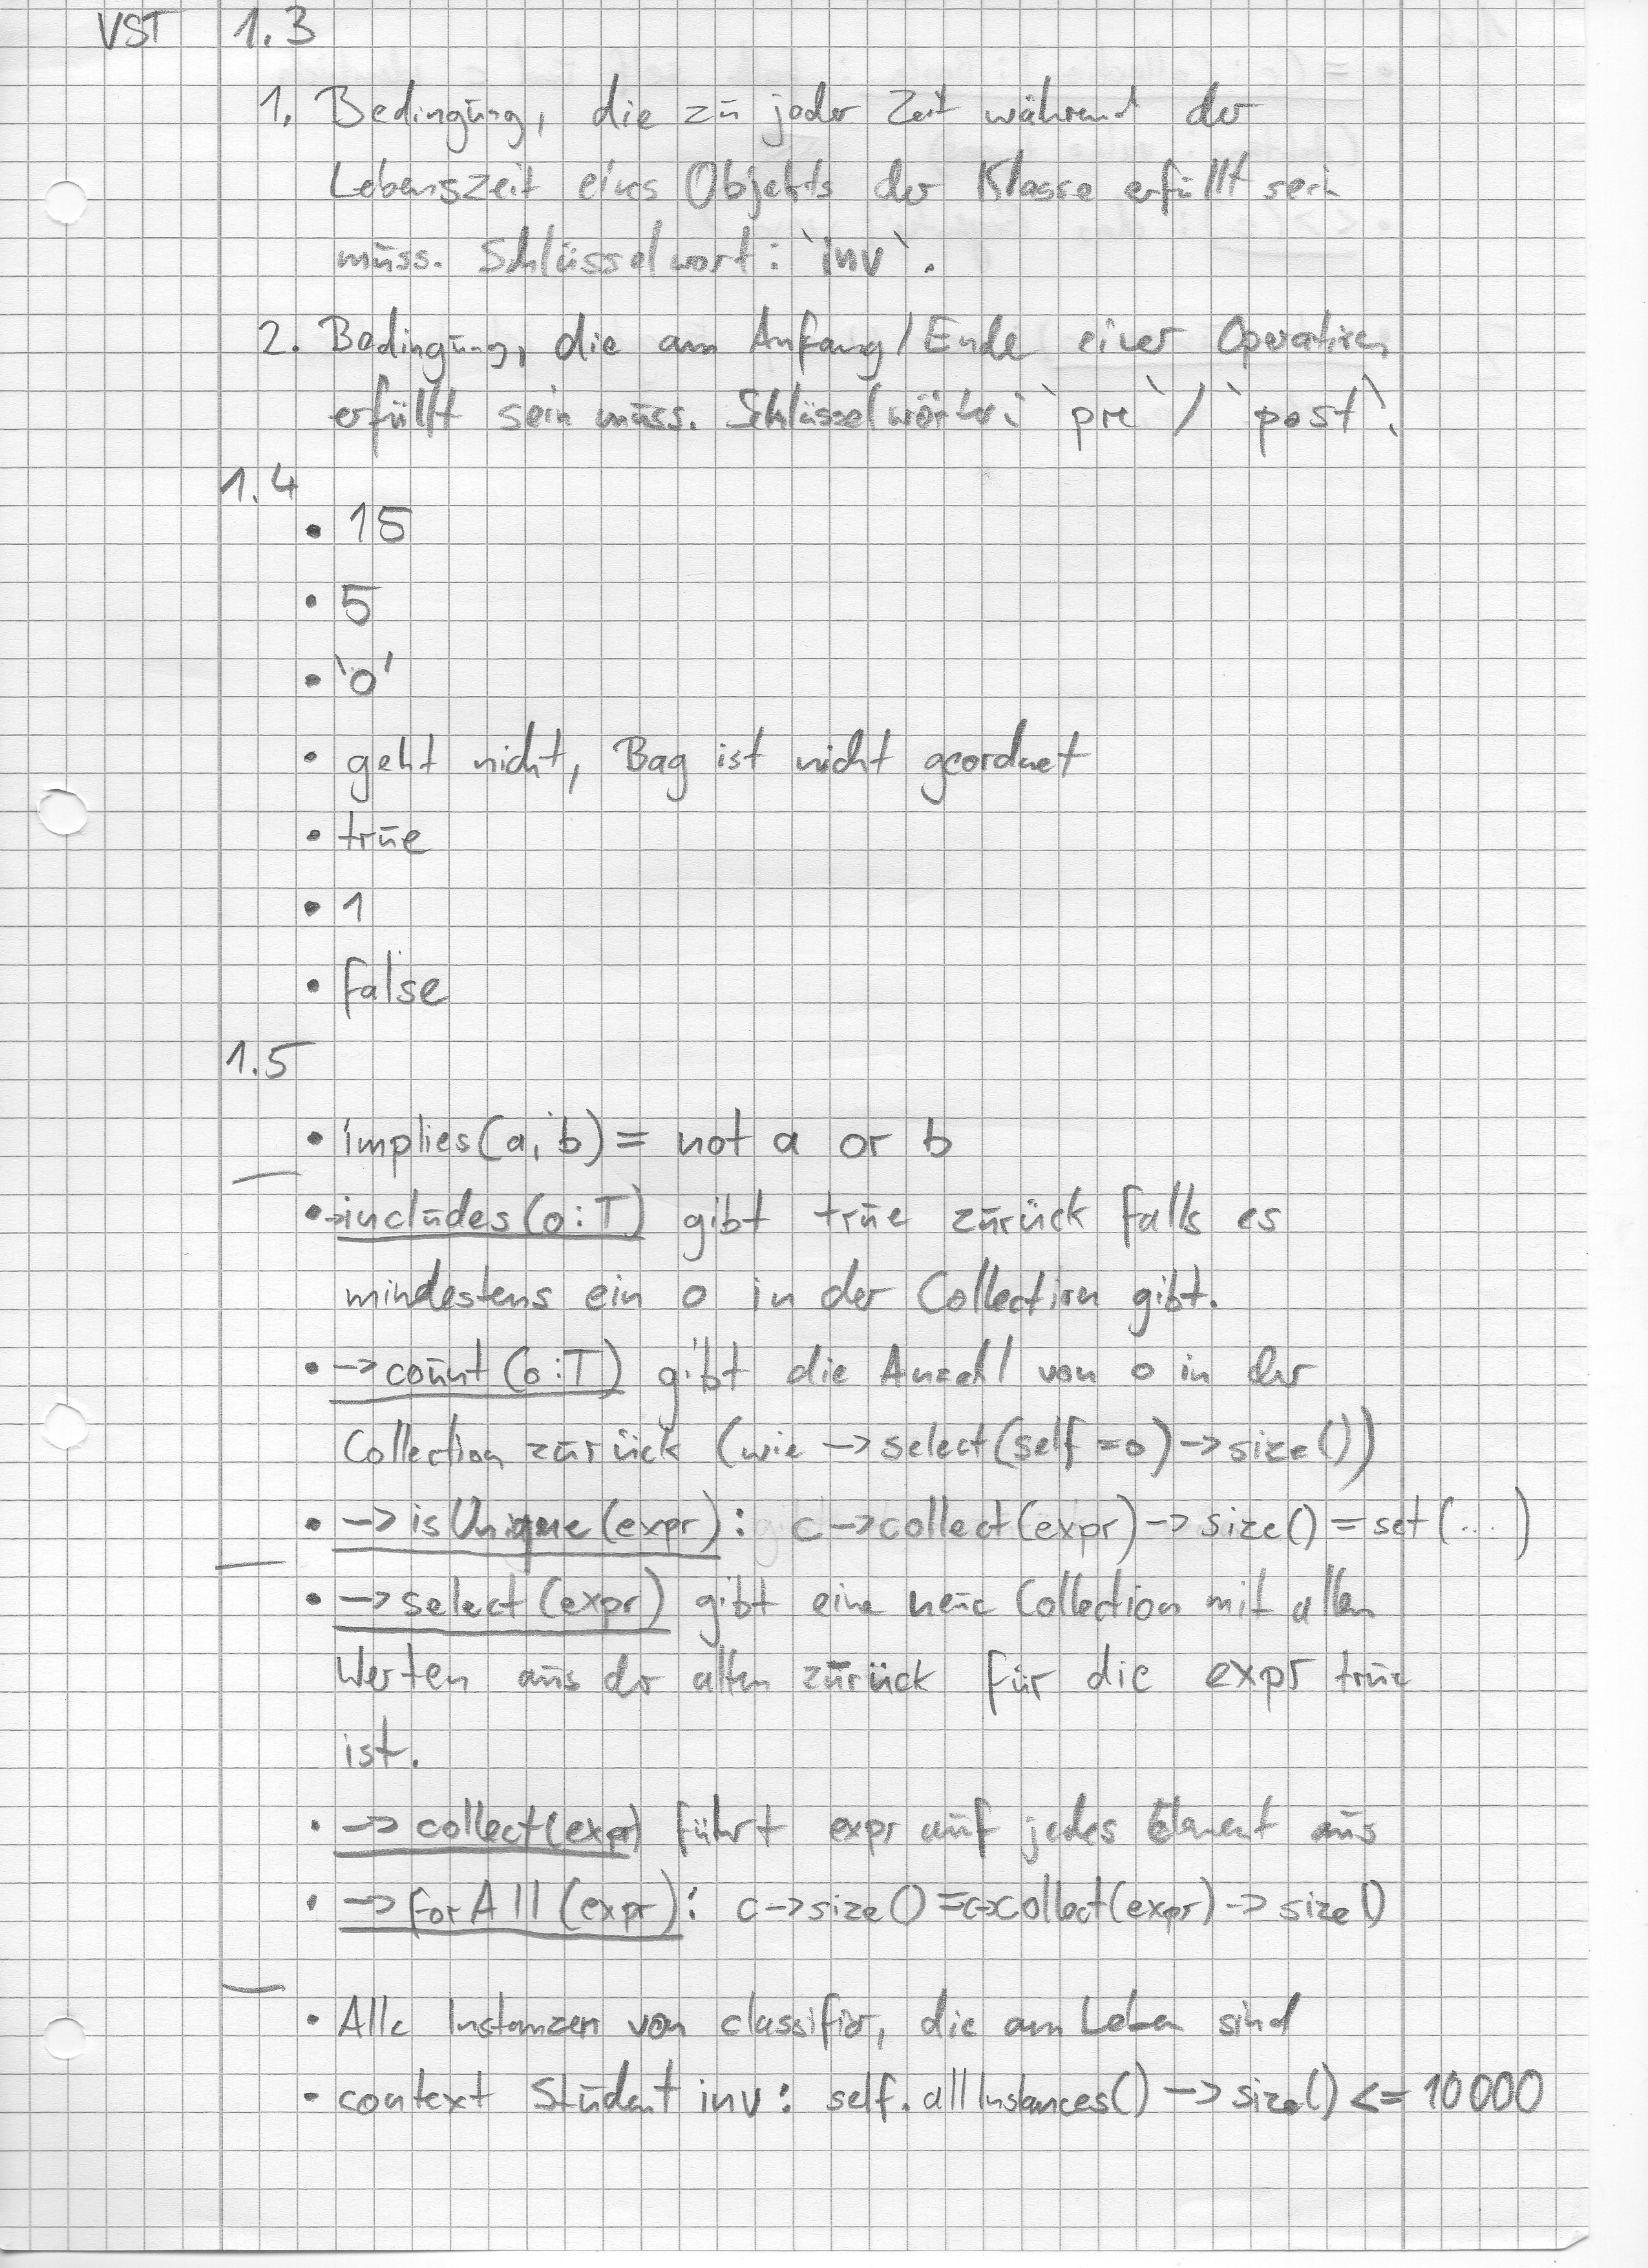 VST 1.3
1. Bedingung, die zu jeder Zeit während der
Lebenszeit eines Objekts der Klasse erfüllt sein
muss. Schlüsselwort: `inv`.
2. Bedingung, die am Anfang/Ende einer Operation
erfüllt sein muss. Schlüsselwörter: `pre` / `post`.
1.4
• 15
• 5
• 'o'
• geht nicht, Bag ist nicht geordnet
• true
• 1
• false
1.5
• implies(a, b) = not a or b
• ->includes(o:T) gibt true zurück falls es
mindestens ein o in der Collection gibt.
• ->count(o:T) gibt die Anzahl von o in der
Collection zurück (wie ->select(self = o)->size())
• ->isUnique(expr): c->collect(expr)->size() = set(...)
• ->select(expr) gibt eine neue Collection mit allen
Werten aus der alten zurück für die expr true
ist.
• ->collect(expr) führt expr auf jedes Element aus
• ->forAll(expr): c->size() = c->collect(expr)->size()
• Alle Instanzen von classifier, die am Leben sind
• context Student inv: self.allInstances()->size() <= 10000